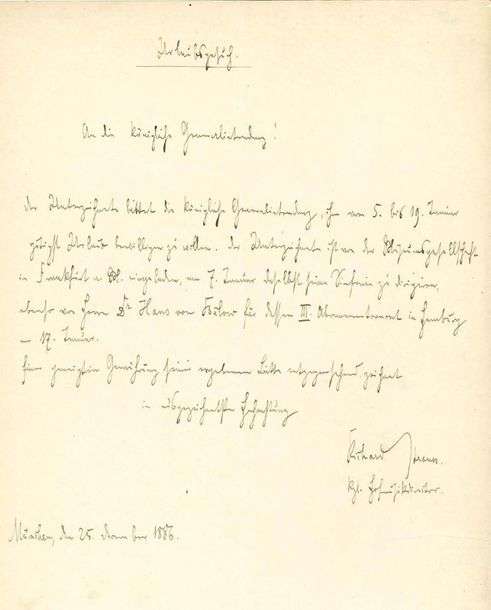 Urlaubsgesuch.
An die königliche Generalintendanz!
Der Unterzeichnete bittet die königliche Generalintendanz, ihm vom 5. bis 19. Januar
gütigst Urlaub bewilligen zu wollen. Der Unterzeichnete ist von der Museumsgesellschaft
in Frankfurt a. M. eingeladen, am 7. Januar daselbst seine Sinfonie zu dirigiren,
ebenso von Herrn Dr Hans von Bülow für dessen III. Abonnementconcert in Hamburg
am 17. Januar.
Einer geneigten Gewährung seiner ergebenen Bitte entgegensehend zeichnet
in ausgezeichnetster Hochachtung
Richard Strauss.
kgl. Hofmusikdirector.
München, den 25. 1886.